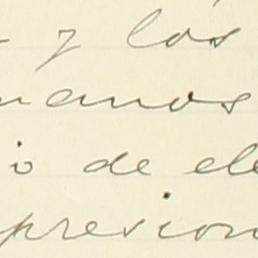 y los
manos
io de ele
presion